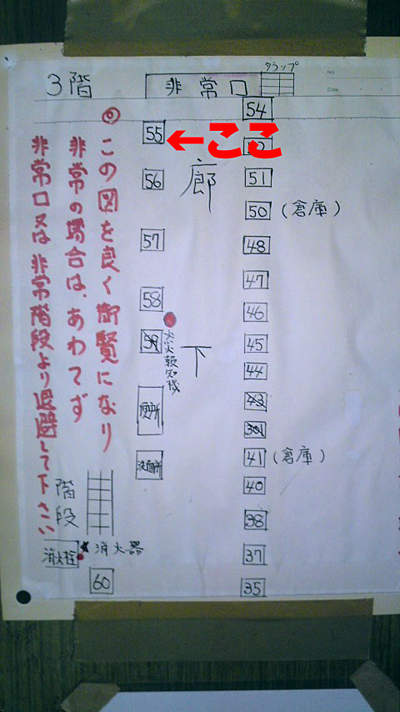 3階
非常口
タラップ
54
55
←ここ
56
廊
51
50 (倉庫)
57
48
47
58
46
火災報知機
45
下
44
便所
洗面所
41 (倉庫)
40
38
37
35
階段
消火栓
消火器
60
◎この図を良く御覧になり
非常の場合は、あわてず
非常口又は非常階段より退避して下さい